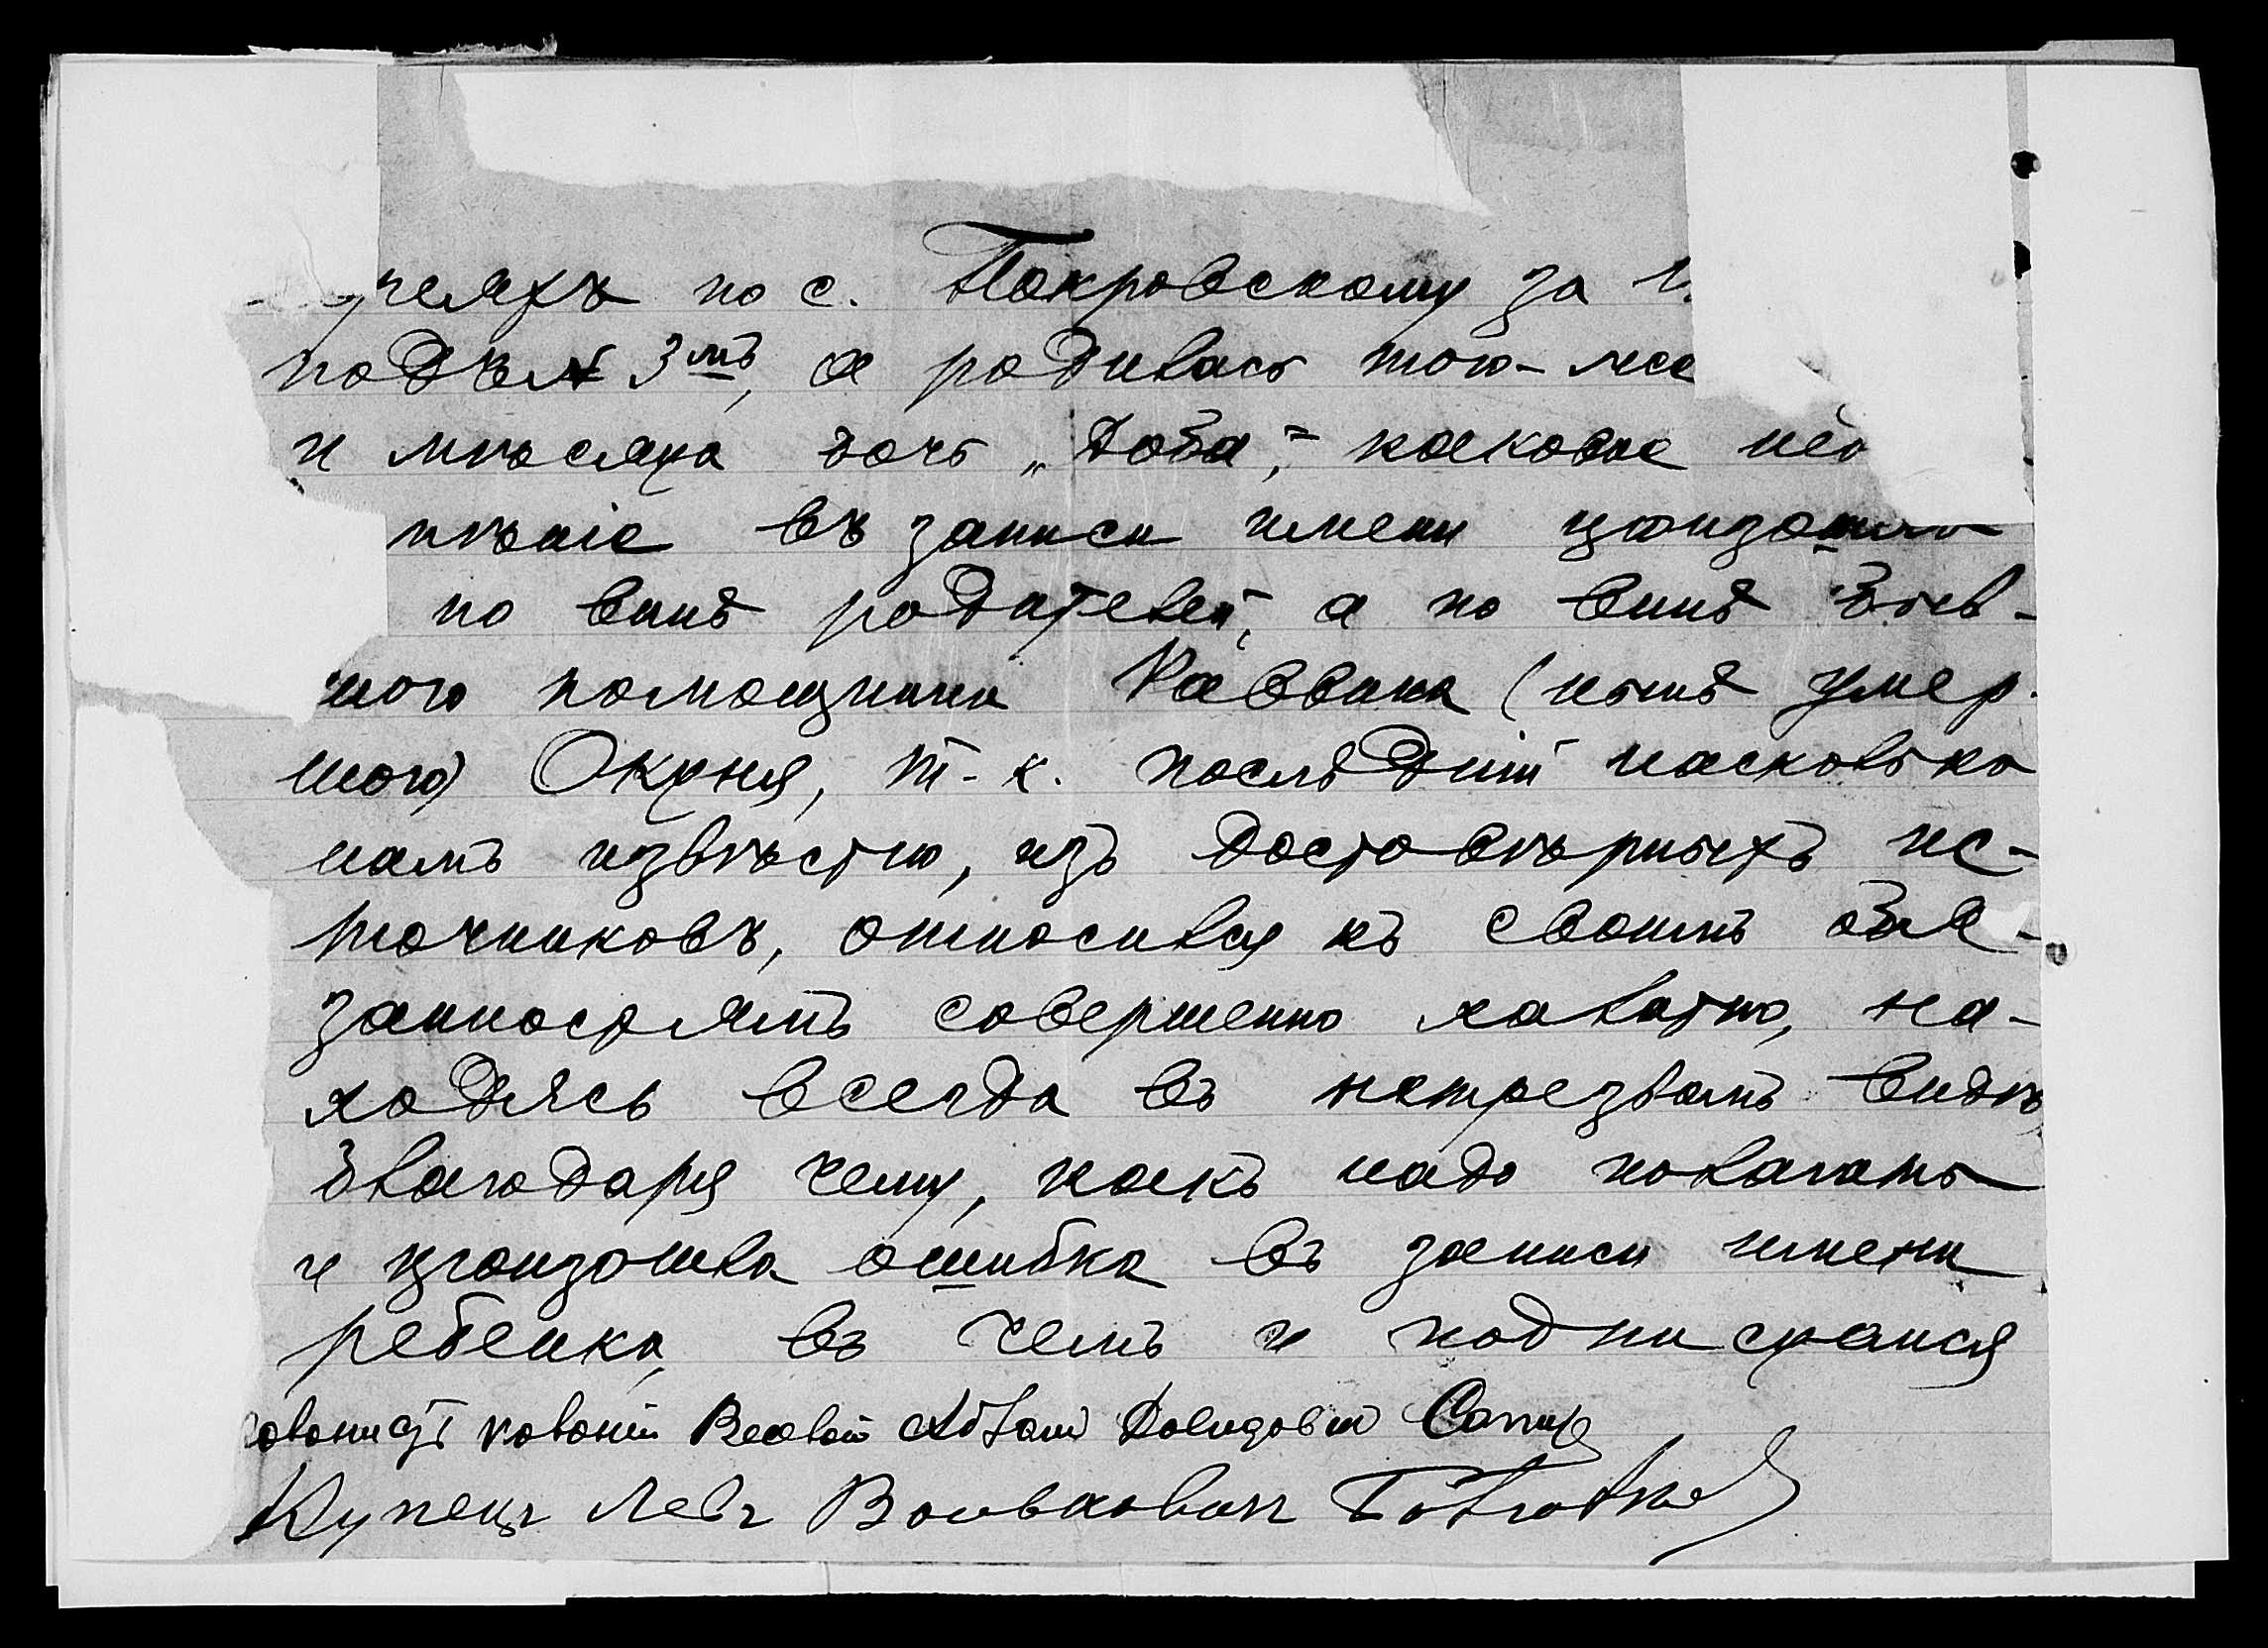 по с. Покровскому за
подъ № 3мъ, а родилась того-же
и мѣсяца дочь „Доба“, каковое
въ записи имени
по винѣ родителей, а по винѣ быв-
помощника Раввина (нынѣ умер-
шого) Окуня, т.-к. послѣдній насколько
намъ извѣстно, изъ достовѣрныхъ ис-
точниковъ, относился къ своимъ обя-
занностямъ совершенно халатно, на-
ходясь всегда въ нетрезвомъ видѣ
благодаря чему, какъ надо полагать
и произошла ошибка въ записи имени
ребенка, въ чемъ и подписуемся
колоніи
Купецъ Левъ Вольковичъ